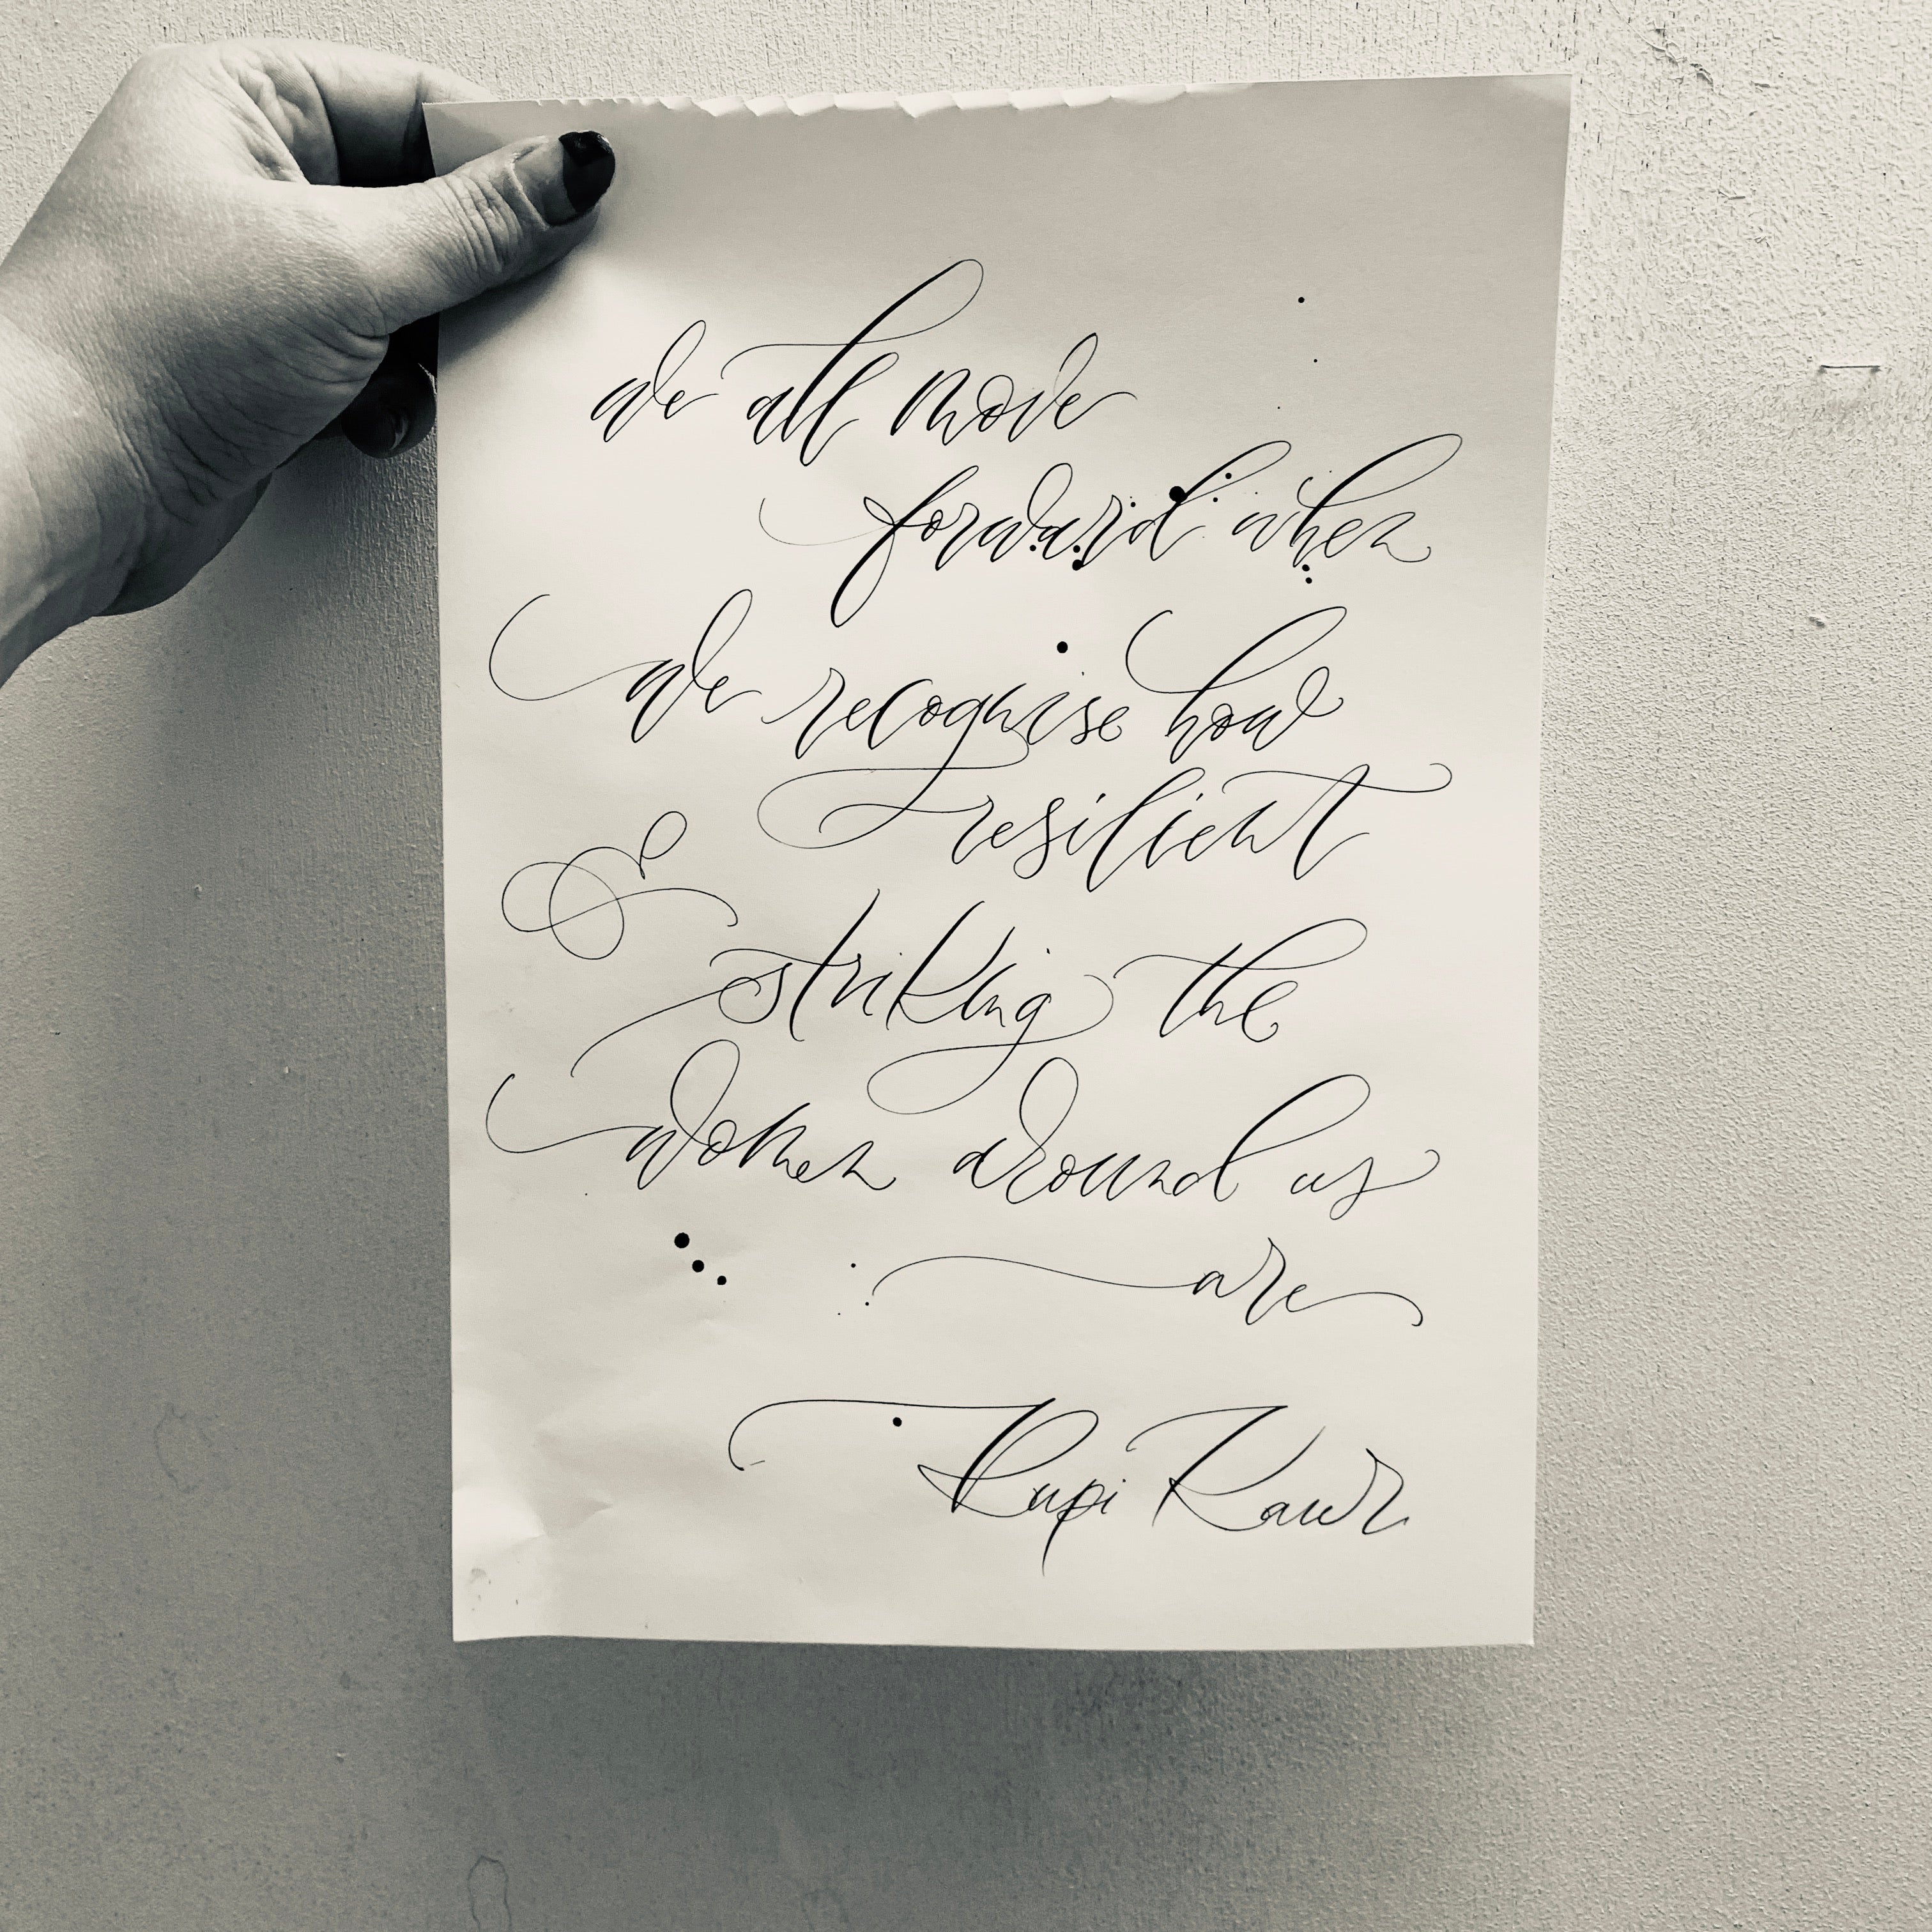 we all move
forward when
we recognise how
resilient
& striking the
women around us
are
Rupi Kaur